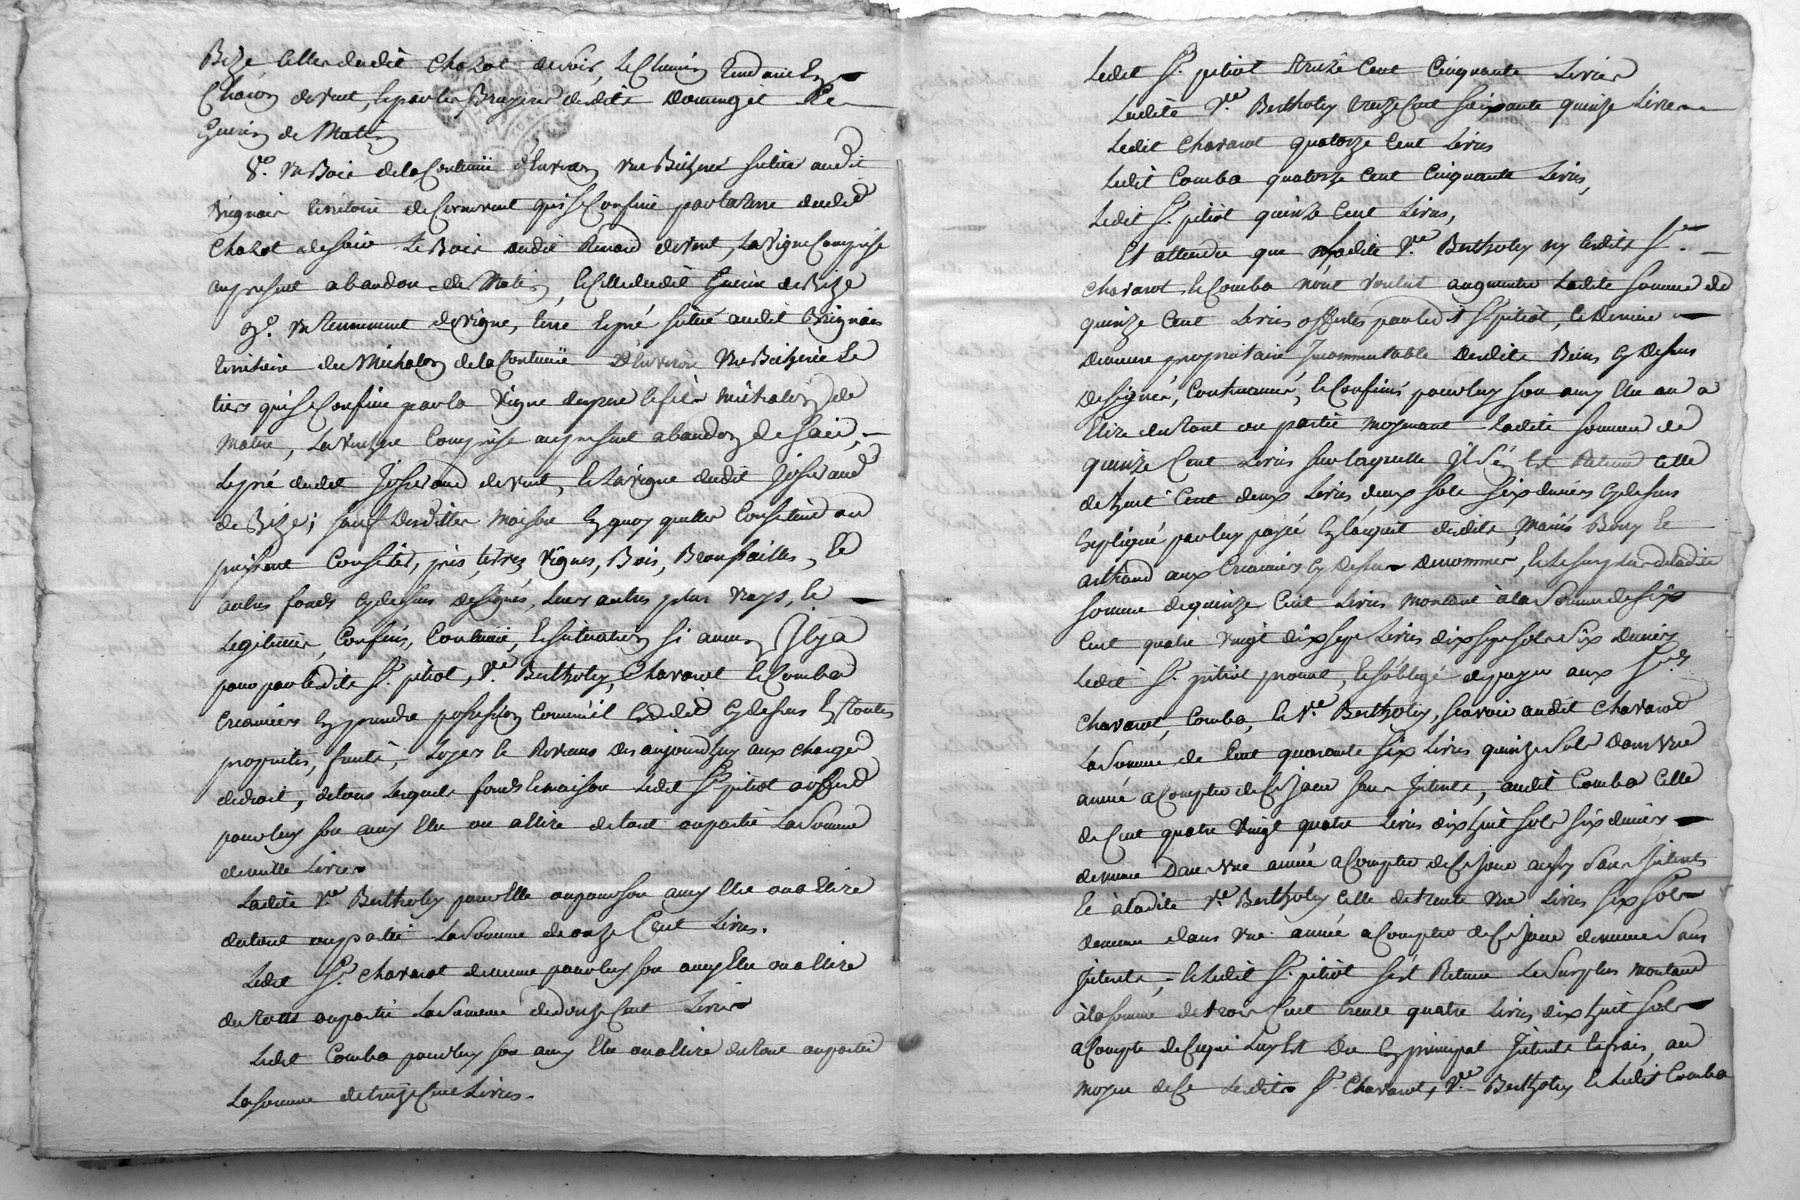 Bize celle dudit Chazot de soir, le Chemin tendant
de vent, le par les Bruyeres dudit
Guerin de Matin
8.º un Bois de la Contenüe d'Environ une Bicherée située audit
Brignais territoire de qui se Confine par la terre dudit
Chazot de soir le Bois audit Renard de vent, la vigne Comprise
au present abandon de Matin, et celle dudit Guerin de Bize
9.º un tennement de vigne, terre et pré situé audit Brignais
territoire du Michalon de la Contenüe d'Environ une Bicherée le
tiers qui se Confine par la vigne du sieur Michalon de
Matin, la Comprise au present abandon de soir,
le pré dudit Josserand de vent, et la vigne dudit Josserand
de Bize; sauf desdittes Maison En quoy qu'elles Consistent ou
puissent Consister, prés, terres, vignes, Bois, Broussailles, Et
autres fonds cy dessus designés, leurs autres plus vrays, et
Legitimes, Confins, Contenüe, et situation si aucun Il y a
pour par lesdits S.r pitiot, V.e Bertholey, Chavarot et Comba
Creanciers En prendre possession Comme il Est dit cy dessus En toutes
proprietés, fruits, Loyers et Revenus des aujourdhuy aux charges
de droit, de tous lesquels fonds et maison ledit S.r pitiot a offert
pour luy son amy Elu ou a Elire du tout ou partie La Somme
de mille Livres
Ladite V.e Bertholey pour Elle ou pour son amy Elu ou a Elire
du tout ou partie La Somme de onze Cent Livres.
Ledit S.r Chavarot de meme pour luy son amy Elu ou a Elire
du tout ou partie La Somme de douze Cent Livres
Ledit Comba pour luy son amy Elu ou a Elire du tout ou partie
La somme de treize Cent Livres.
Ledit S.r pitiot treize Cent Cinquante Livres
Ladite V.e Bertholey treize Cent soixante quinze Livres
Ledit Chavarot quatorze Cent Livres
Ledit Comba quatorze Cent Cinquante Livres,
Ledit S.r pitiot quinze Cent Livres,
Et attendu que ladite V.e Bertholey ny lesdits S.rs
Chavarot et Comba n'ont voulut augmenter Ladite Somme de
quinze Cent Livres offertes par ledit S.r pitiot, ce dernier
demeure propriétaire Incommutable desdits Biens cy dessus
designés, Contenances, et Confins pour luy son amy Elu ou a
Elire du tout ou partie moyenant Ladite somme de
quinze Cent Livres sur laquelle Il s'en Est Retenu Celle
de huit Cent deux Livres deux sols six deniers cy dessus
Expliqué par luy payée En l'acquit desdits Mariés Bony et
Arthaud aux Creanciers cy dessus denommes, et le surplus de ladite
somme de quinze Cent Livres montant à la Somme de six
Cent quatre vingt dix sept Livres dix sept sols six deniers
Ledit S.r pitiot promet, et s'oblige de payer aux S.rs
Chavarot, Comba, et V.e Bertholey, scavoir audit Chavarot
La Somme de Cent quarante six Livres quinze sols dans une
année a Compter de Ce jour sans Interets, audit Comba Celle
de Cent quatre vingt quatre Livres dix huit sols six deniers
de meme Dans une année a Compter de Ce jour aussy sans Interets
Et à ladite V.e Bertholey Celle de trente une Livres six sols
de meme dans une année a Compter de Ce jour de meme Sans
Interets, et ledit S.r pitiot s'est Retenu Le Surplus montant
à la somme de trois Cent trente quatre Livres dix huit sols
a Compte de Ce qui Luy Est dû En principal Interets et frais, au
moyen de Ce Lesdits S.r Chavarot, V.e Bertholey, et Ledit Comba